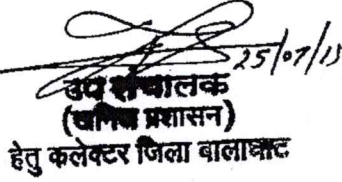 25/07/13
उप संचालक
(खनिज प्रशासन)
हेतु कलेक्टर जिला बालाघाट